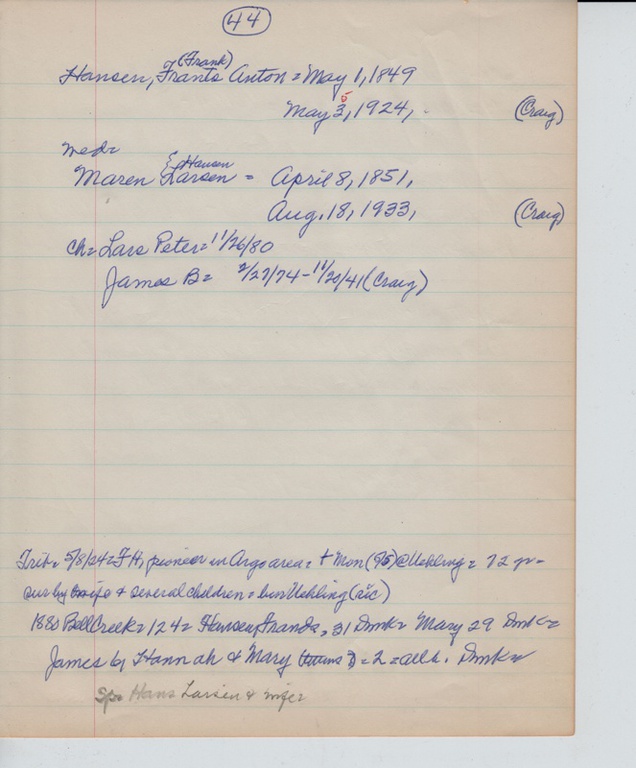 44
(Frank)
Hansen, Frants Anton = May 1, 1849
5
May 3, 1924, (Craig)
med=
{Hansen
Maren Larsen = April 8, 1851,
Aug. 18, 1933, (Craig)
ch= Lars Peter= 11/26/80
James B= 2/27/74 - 11/20/41 (Craig)
Trib= 5/8/24= F H, pioneer in Argo area= + Mon (5) @ Uehling = 72 yr-
sur by wife + several children = bur Uehling (sic)
1880 Bell Creek = 124 = Hansen, Frands, 31 Dmk= Mary 29 Dmk=
James 6, Hannah & Mary (twins?) = 2 = all b. Dmk=
Sp= Hans Larsen & wife=